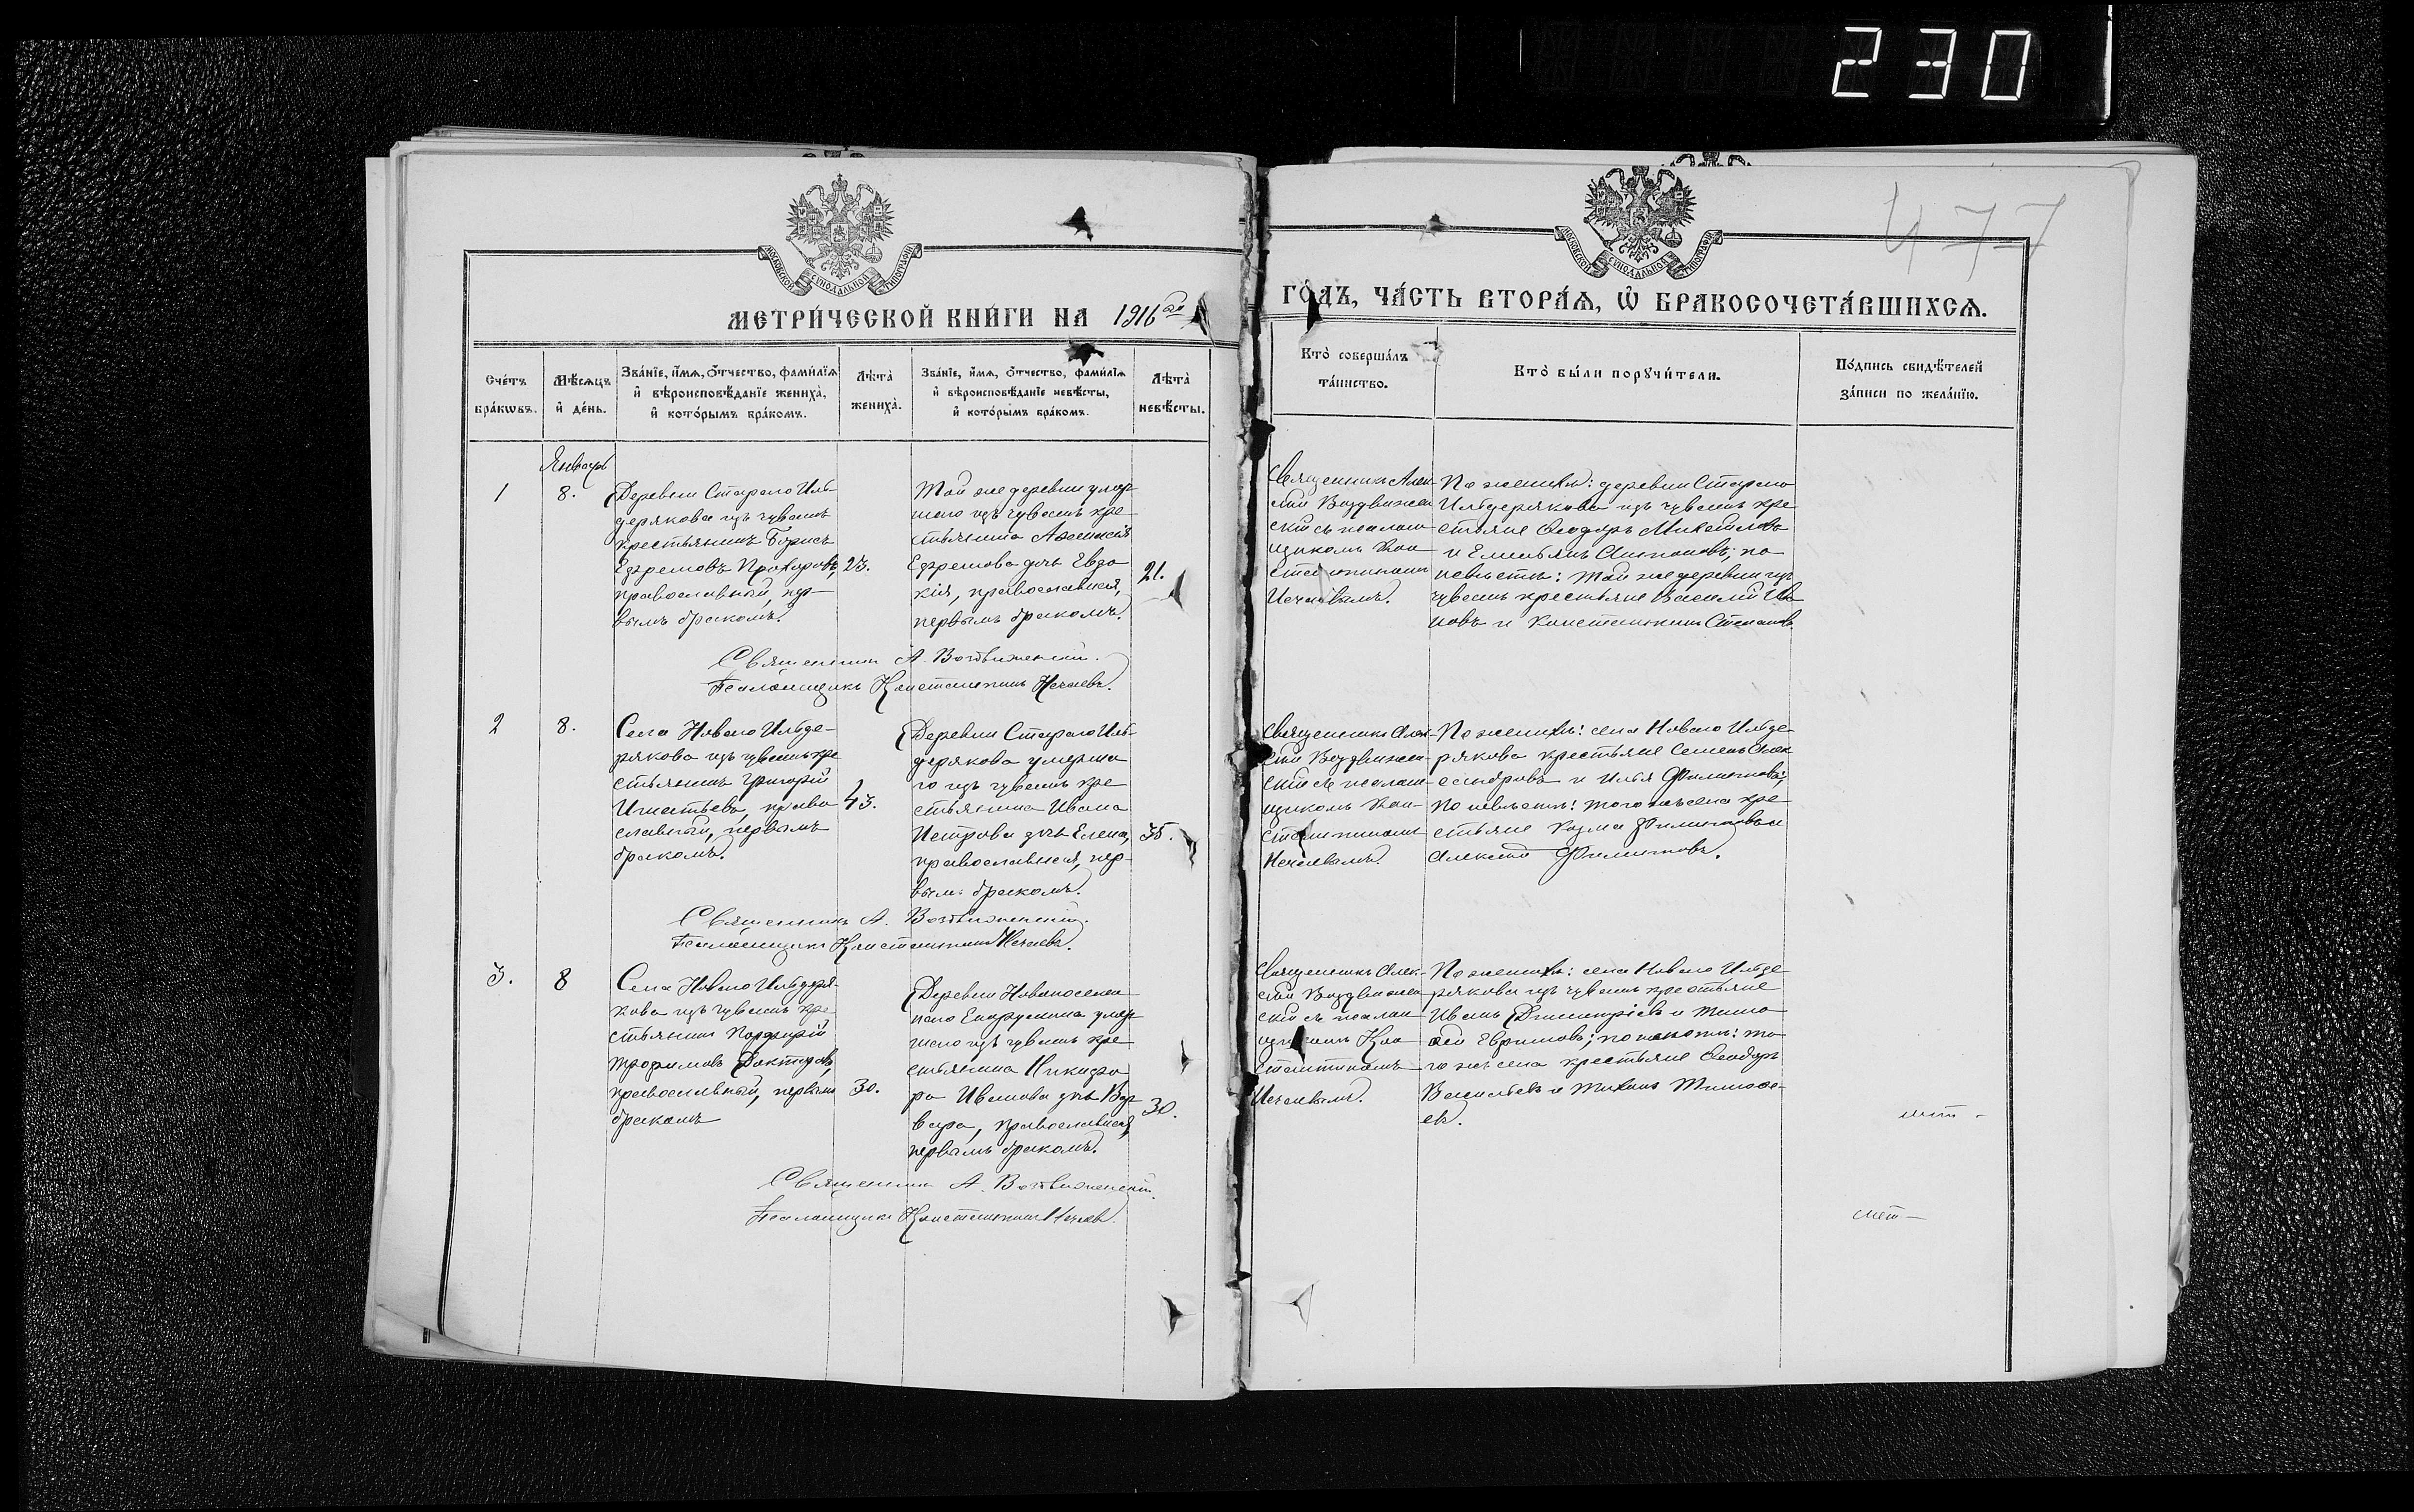 230
477
МОСКОВСКОЙ СѴНОДАЛЬНОЙ ТИПОГРАФІИ
МОСКОВСКОЙ СѴНОДАЛЬНОЙ ТИПОГРАФІИ
МЕТРИ́ЧЕСКОЙ КНИ́ГИ НА 1916 го
ГО́ДЪ, ЧА́СТЬ ВТОРА́Ѧ, Ѽ БРАКОСОЧЕТА́ВШИХСѦ.
Сче́тъ бра́кѡвъ.
Мѣ́сѧцъ и҆ де́нь.
Зва́нїе, и҆́мѧ, ѻ҆́тчество, фами́лїѧ
и҆ вѣроисповѣ́данїе жениха̀,
и҆ кото́рымъ бра́комъ.
Лѣ́та̀ жениха̀.
Зва́нїе, и҆́мѧ, ѻ҆́тчество, фами́лїѧ
и҆ вѣроисповѣ́данїе невѣ́сты,
и҆ кото́рымъ бра́комъ.
Лѣ́та̀ невѣ́сты.
Кто̀ соверша́лъ
та́инство.
Кто̀ бы́ли порꙋчи́тели.
По́дпись свидѣ́телей
за́писи по жела́нїю.
Январь
1
8.
Деревни Стараго Иль-
дерякова изъ чувашъ
крестьянинъ Борисъ
Ефремовъ Прохоровъ,
православный, пер-
вымъ бракомъ.
23.
Той же деревни умер-
шаго изъ чувашъ кре
стьянина
Ефремова дочь Евдо
кія, православная,
первымъ бракомъ.
21.
Священникъ Алек-
сѣй Воздвижен
скій съ псалом
щикомъ Кон
стантиномъ
Нечаевымъ.
По женихѣ: деревни Стараго
Ильдерякова изъ чувашъ кре
стьяне Ѳеодоръ Михайловъ
и Емельянъ Антоновъ; по
невѣстѣ: той же деревни изъ
чувашъ крестьяне Василій Ива
новъ и Константинъ Степановъ.
Священникъ А. Воздвиженскій.
Псаломщикъ Константинъ Нечаевъ.
2
8.
Села Новаго Ильде-
рякова изъ чувашъ кре
стьянинъ Григорій
Игнатьевъ, право
славный, первымъ
бракомъ.
43.
Деревни Стараго Иль-
дерякова умерша
го изъ чувашъ кре
стьянина Ивана
Петрова дочь Елена,
православная, пер-
вым. бракомъ.
35.
Священникъ Алек-
сѣй Воздвижен
скій съ псалом-
щикомъ Кон-
стантиномъ
Нечаевымъ.
По женихѣ: села Новаго Ильде-
рякова крестьяне Семенъ Алек
сандровъ и Илья Филипповъ;
по невѣстѣ: того же села кре
стьяне Козма Филипповъ и
Алексѣй Филипповъ.
Священникъ А. Воздвиженскій.
Псаломщикъ Константинъ Нечаевъ.
3.
8
Села Новаго Ильдеря-
кова изъ чувашъ кре
стьянинъ Порфирій
Трофимовъ Докторовъ,
православный, первымъ
бракомъ
30.
Деревни Новопоселен
наго умер
шаго изъ чувашъ кре
стьянина Никифо
ра Иванова дочь Вар
вара, православная,
первымъ бракомъ.
30.
Священникъ Алек-
сѣй Воздвижен
скій съ псалом
щикомъ Кон
стантиномъ
Нечаевымъ.
По женихѣ: села Новаго Ильде
рякова изъ чувашъ крестьяне
Иванъ Димитріевъ и Тимо
ѳей Ефимовъ; по невѣстѣ: то
го же села крестьяне Ѳеодоръ
Васильевъ и Тихонъ Тимоѳе-
евъ.
Священникъ А. Воздвиженскій.
Псаломщикъ Константинъ Нечаевъ.